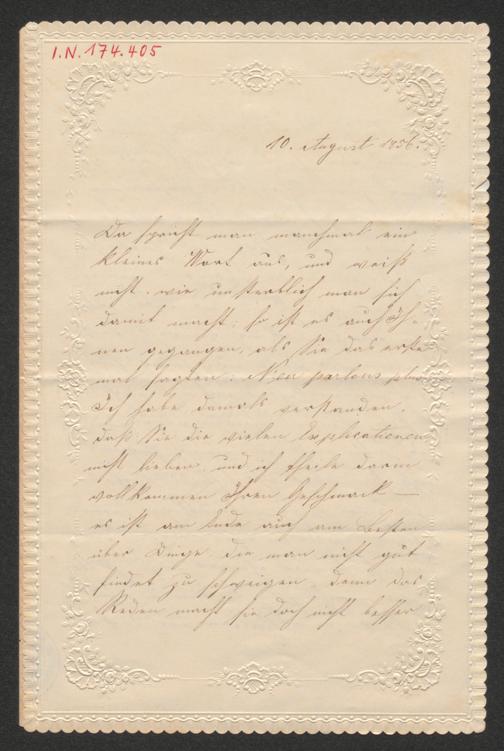 I.N. 174.405
10. August 1856.
Da spricht man manchmal ein
kleines Wort aus, und weiß
nicht wie unsterblich man sich
damit macht; so ist es auch Ih-
nen gegangen, als Sie das erste
mal sagten: N'en parlons plus
Ich habe damals verstanden,
daß Sie die vielen Explicationen
nicht lieben, und ich theile darin
vollkommen Ihren Geschmack —
es ist am Ende auch am Besten
über Dinge die man nicht gut
findet zu schweigen, denn das
Reden macht sie doch nicht besser